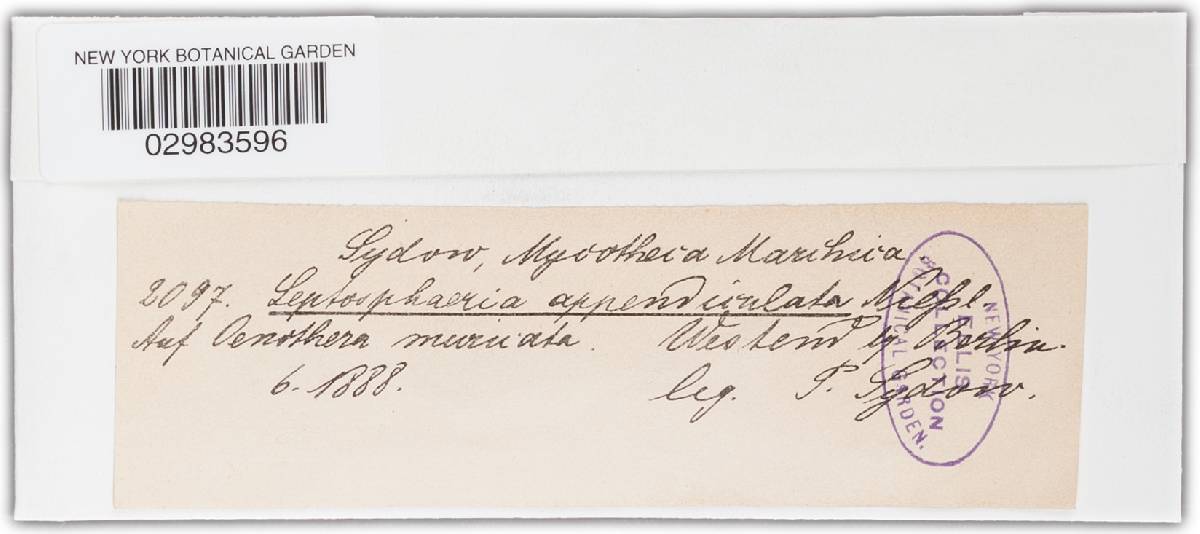 NEW YORK BOTANICAL GARDEN
02983596
Sydow, Mycotheca Marchica.
2097. Leptosphaeria appendiculata Niessl.
Auf Oenothera muricata. Westend b. Berlin.
6. 1888. leg. P. Sydow.
NEW YORK
ELLIS
COLLECTION
BOTANICAL GARDEN.